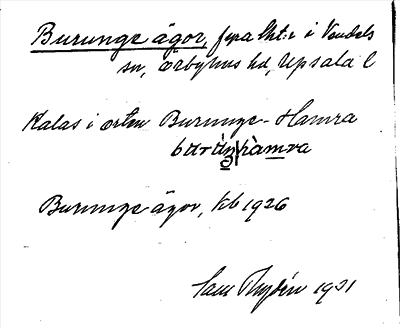 Burunge ägor, fyra lht:r i Vendels
sn, Örbyhus hd, Upsala l
Kalas i orten Burunge-Hamra
Burunge ägor, kb 1926
1931